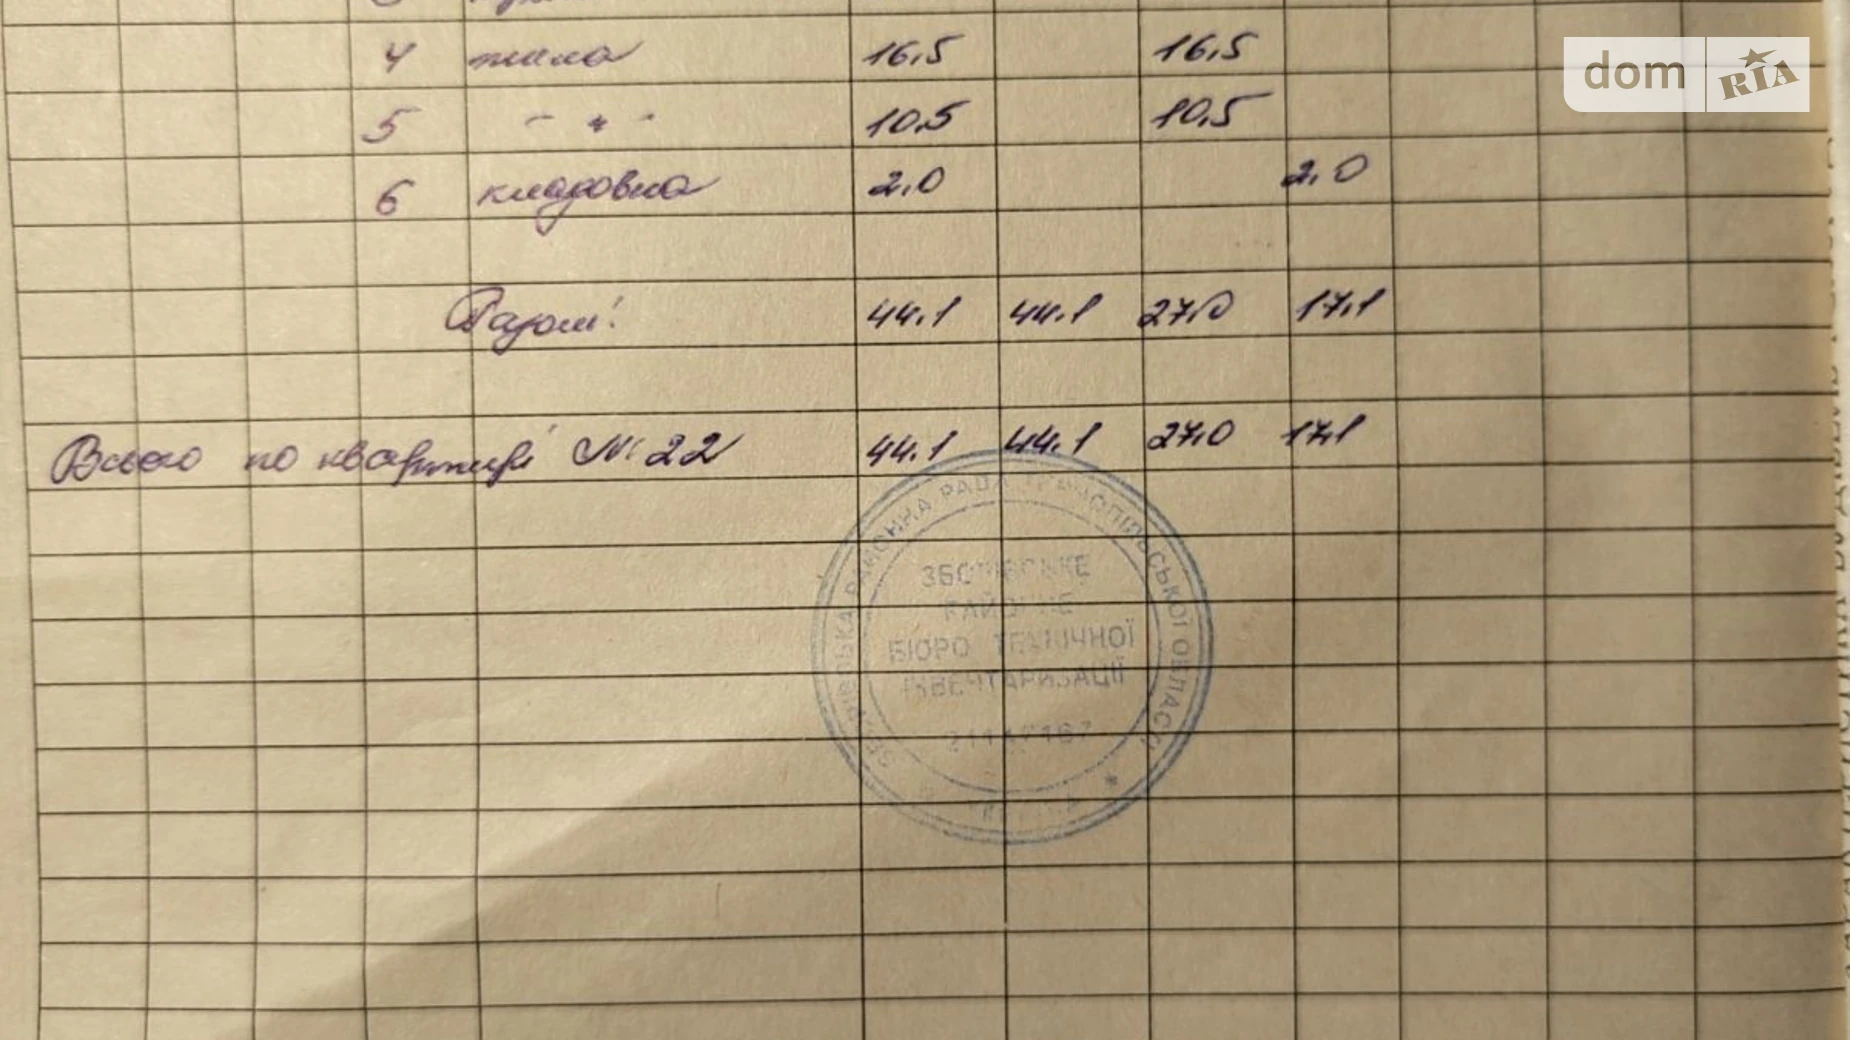 dom RIA
4 жила 16,5 16,5
5 - " - 10,5 10,5
6 кладовка 2,0 2,0
Разом: 44,1 44,1 27,0 17,1
Всього по квартирі № 22 44,1 44,1 27,0 17,1
РАЙОННА РАДА ТЕРНОПІЛЬСЬКОЇ ОБЛАСТІ
ЗБОРІВСЬКЕ
РАЙОННЕ
БЮРО ТЕХНІЧНОЇ
ІНВЕНТАРИЗАЦІЇ